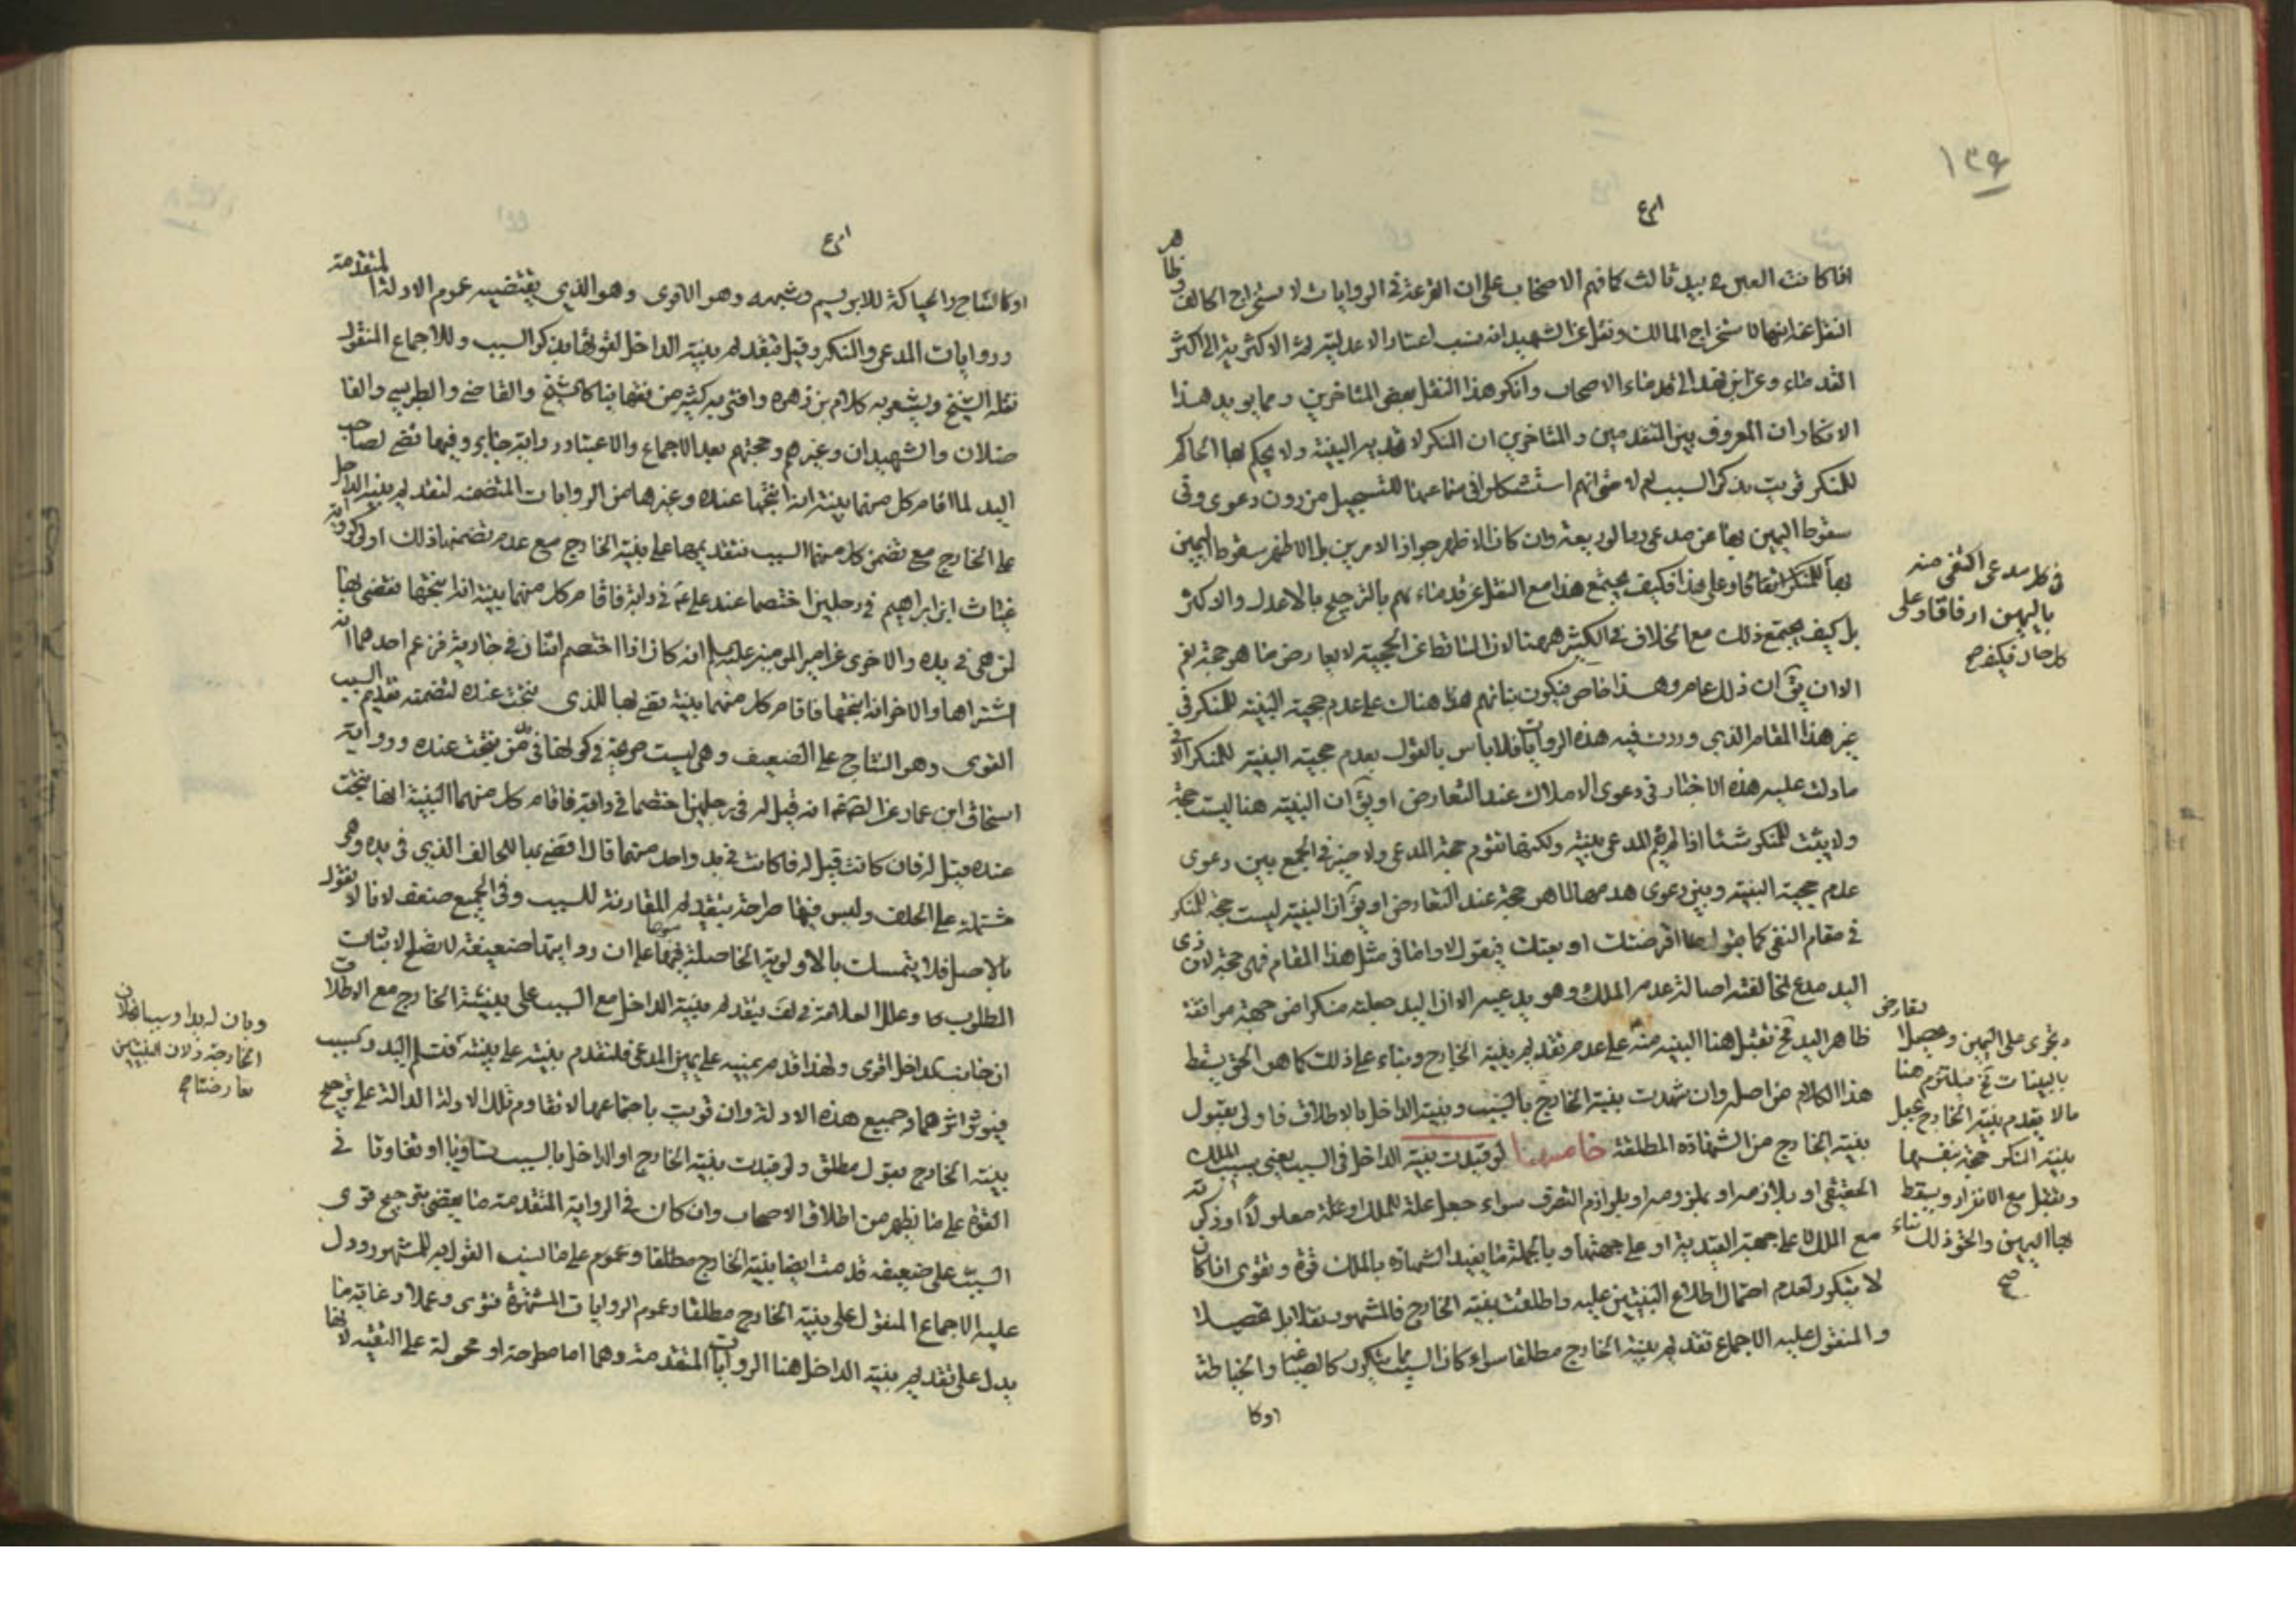 ١٣٩
اذا كانت العين في يد ثالث كافهم الاصحاب على ان القرعة في الروايات لاستخراج الحالف وظاهر
النقل عنه انها لاستخراج المالك ونقل عن الشهيد انه نسب اعتبار الاعدلية ثم الاكثرية الى اكثر
القدماء وعن ابن فهد الى قدماء الاصحاب وانكر هذا النقل بعض المتاخرين ومما يويد هذا
الانكار ان المعروف بين المتقدمين والمتاخرين ان المنكر لا تفيده البينة ولا يحكم بها الحاكم
للمنكر قويت بذكر السبب ام لا حتى انهم استشكلوا في سماعها للتسجيل من دون دعوى وفي
سقوط اليمين بها عن مدعي رد الوديعة وان كان الاظهر جواز الامرين بل الاظهر سقوط اليمين
بها للمنكر اتفاقا وعلى هذا فكيف يجتمع هذا مع النقل عن قدمائهم بالترجيح بالاعدل والاكثر
بل كيف يجتمع ذلك مع الخلاف في الكثير ههنا لان الساقط عن الحجية لا يعارض ما هو حجة نعم
الا ان يق ان ذلك عام وهذا خاص فيكون بنائهم هناك على عدم حجية البينة للمنكر في
غير هذا المقام الذي وردت فيه هذه الروايات فلا باس بالقول بعدم حجية البينة للمنكر الا في
ما دلت عليه هذه الاخبار في دعوى الاملاك عند التعارض او يق ان البينة هنا ليست حجة
ولا يثبت للمنكر شئا اذا لم يقم المدعي بينة ولكنها تقوم حجة المدعي ولا ضير في الجمع بين دعوى
عدم حجية البينة وبين دعوى هدمها لما هو حجة عند التعارض او يق ان البينة ليست حجة للمنكر
في مقام النفي كما يقول اقرضتك او بعتك فيقول لا واما في مثل هذا المقام فهي حجة لان ذي
اليد مدع لمخالفته اصالة عدم الملك وهو يدعيه الا ان اليد جعلته منكرا من جهة موافقة
ظاهر اليد فح تقبل هنا البينة منه على عدم تقديم بينة الخارج وبناء على ذلك كما هو الحق يسقط
هذا الكلام من اصله وان شهدت بينة الخارج بالسبب وبينة الداخل بالاطلاق فاولى بقبول
بينة الخارج من الشهادة المطلقة خامسها لو قيدت بينة الداخل في السبب يعني بسبب الملك
الحقيقي او بلازمه او بملزومه او بلوازم التصرف سواء جعل علة للملك او علة معلولا او ذكرته
مع الملك لا على جهة القيدية او على جهتها وبالجملة ما يفيد الشهادة بالملك قوة وتقوى اذا كان
لا يتكرر لعدم احتمال اطلاع البينتين عليه واطلقت بينة الخارج فالمشهور نقلا بل تحصيلا
والمنقول عليه الاجماع تقديم بينة الخارج مطلقا سواء كان السبب مما يتكرر كالصياغة والخياطة
اوكا
في كل مدعي اكتفى منه
باليمين ارفاقا وعلى
كل حال فكيف صح
وتجرى على اليمين ويحصل تعارض
بالبينات فح فيلتزم هنا
ما لا يقدم بينة الخارج بجعل
بينة المنكر حجة بنفسها
وتقبل مع الانفراد ويسقط
بها اليمين والحق ذلك بناء
صح
او كالنتاج والحياكة للابريسم وشبهه وهو الاقوى وهو الذي يقتضيه عموم الادلة المتقدمة
وروايات المدعي والمنكر وقيل بتقديم بينة الداخل لقوتها بذكر السبب وللاجماع المنقول
نقله الشيخ ويشعر به كلام بن زهره وافتى به كثير من فقهاينا كالشيخ والقاضي والطبرسي والفا
ضلان والشهيدان وغيرهم وحجتهم بعد الاجماع والاعتبار رواية جابر وفيها قضى لصاحب
اليد لما اقام كل منهما بينة انه انتجها عنده وغيرها من الروايات المتضمنه لتقديم بينة الداخل
على الخارج مع تضمن كل منهما السبب فتقديمها على بينة الخارج مع عدم تضمنها ذلك اولى كرواية
غياث ابن ابراهيم في رجلين اختصما عند علي ع في دابة فاقام كل منهما بينة انه انتجها فقضى بها
لمن هي في يده والاخرى عن امير المومنين عليه السلم انه كان اذا اختصم اثنان في جارية فزعم احدهما انه
اشتراها والاخر انه انتجها فاقام كل منهما بينة قضى بها للذي نتجت عنده لتضمنه تقديم السبب
القوي وهو النتاج على الضعيف وهي ليست صريحة في كونها في يد من نتجت عنده ورواية
اسحاق ابن عمار عن الصادق ع انه قيل له في رجلين اختصما في دابة فاقام كل منهما البينة انها نتجت
عنده قيل له فان كانت قيل له فان كانت في يد واحد منهما قال اقضي بها للحالف الذي في يده وهي
مشتملة على الحلف وليس فيها صراحة بتقديم المقارنة للسبب وفي الجميع ضعف لانا لا نقول
بالاصل فلا يتمسك بالاولوية الحاصلة فيها على ان روايتها ضعيفة لا تصلح لاثبات
المطلوب بها وعلل العلامة في لف بتقديم بينة الداخل مع السبب على بينة الخارج مع الاطلاق
ان جانب الداخل اقوى ولهذا قدم يمينه على يمين المدعي فلتقدم بينته على بينته فتسلم اليد وسبب
فيوثر اثرهما وجميع هذه الادلة وان قويت باجتماعها لا تقاوم تلك الادلة الدالة على ترجيح
بينة الخارج بقول مطلق ولو قيدت بينة الخارج او الداخل بالسبب تساويا او تفاوتا في
القوة على ما يظهر من اطلاق الاصحاب وان كان في الرواية المتقدمة ما يقضي بترجيح قوى
السبب على ضعيفه قدمت ايضا بينة الخارج مطلقا وعموم على ما نسب القول به للمشهور ودل
عليه الاجماع المنقول على بينة الخارج مطلقا وعموم الروايات المشتهرة فتوى وعملا وغاية ما
يدل على تقديم بينة الداخل هنا الروايات المتقدمة وهما اما مطرحة او محمولة على التقية لانها
وبان له يدا وسببا فلان
الخارجة ولان البينتين
تعارضتا صح